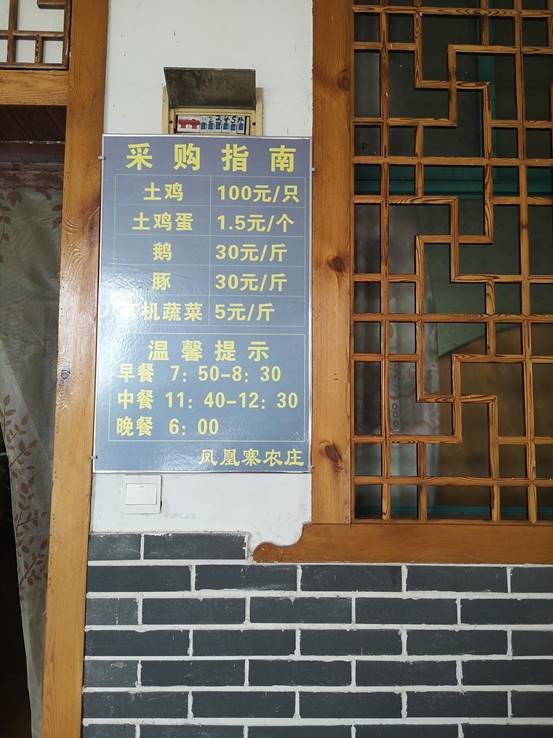 采购指南
土鸡 100元/只
土鸡蛋 1.5元/个
鹅 30元/斤
豚 30元/斤
有机蔬菜 5元/斤
温馨提示
早餐 7: 50-8: 30
中餐 11: 40-12: 30
晚餐 6: 00
凤凰寨农庄